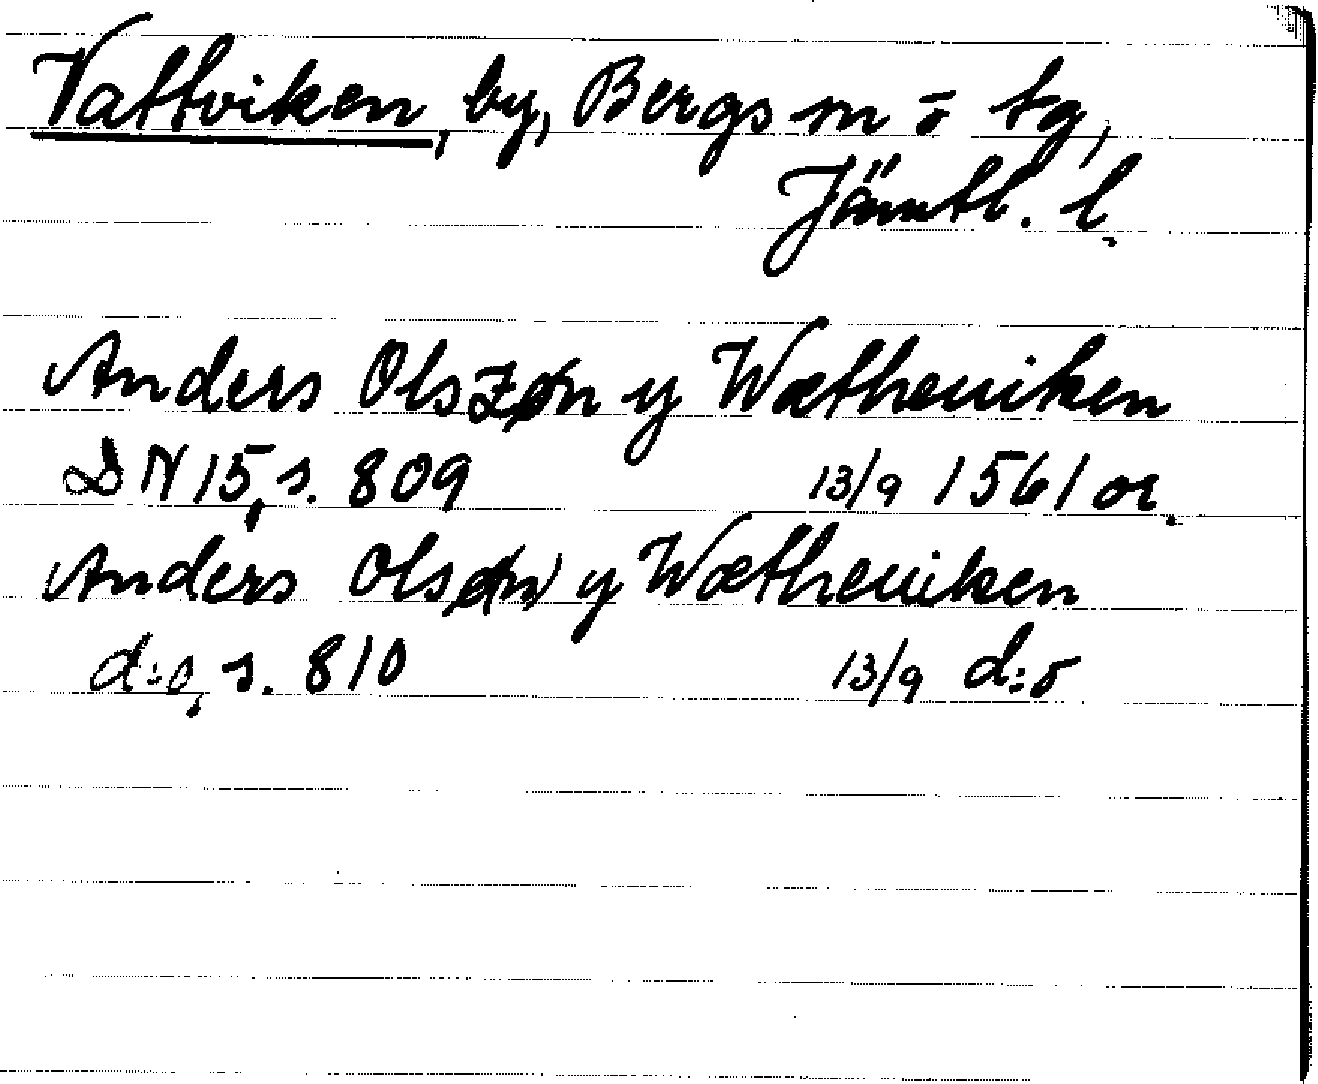 Vattviken, by, Bergs sn o tg,
Jämtl. l.
Anders Olszøn y Wætheuiken
DN 15, s. 809 13/9 1561 or.
Anders Olsøn y Wætheuiken
d:o, s. 810 13/9 d:o